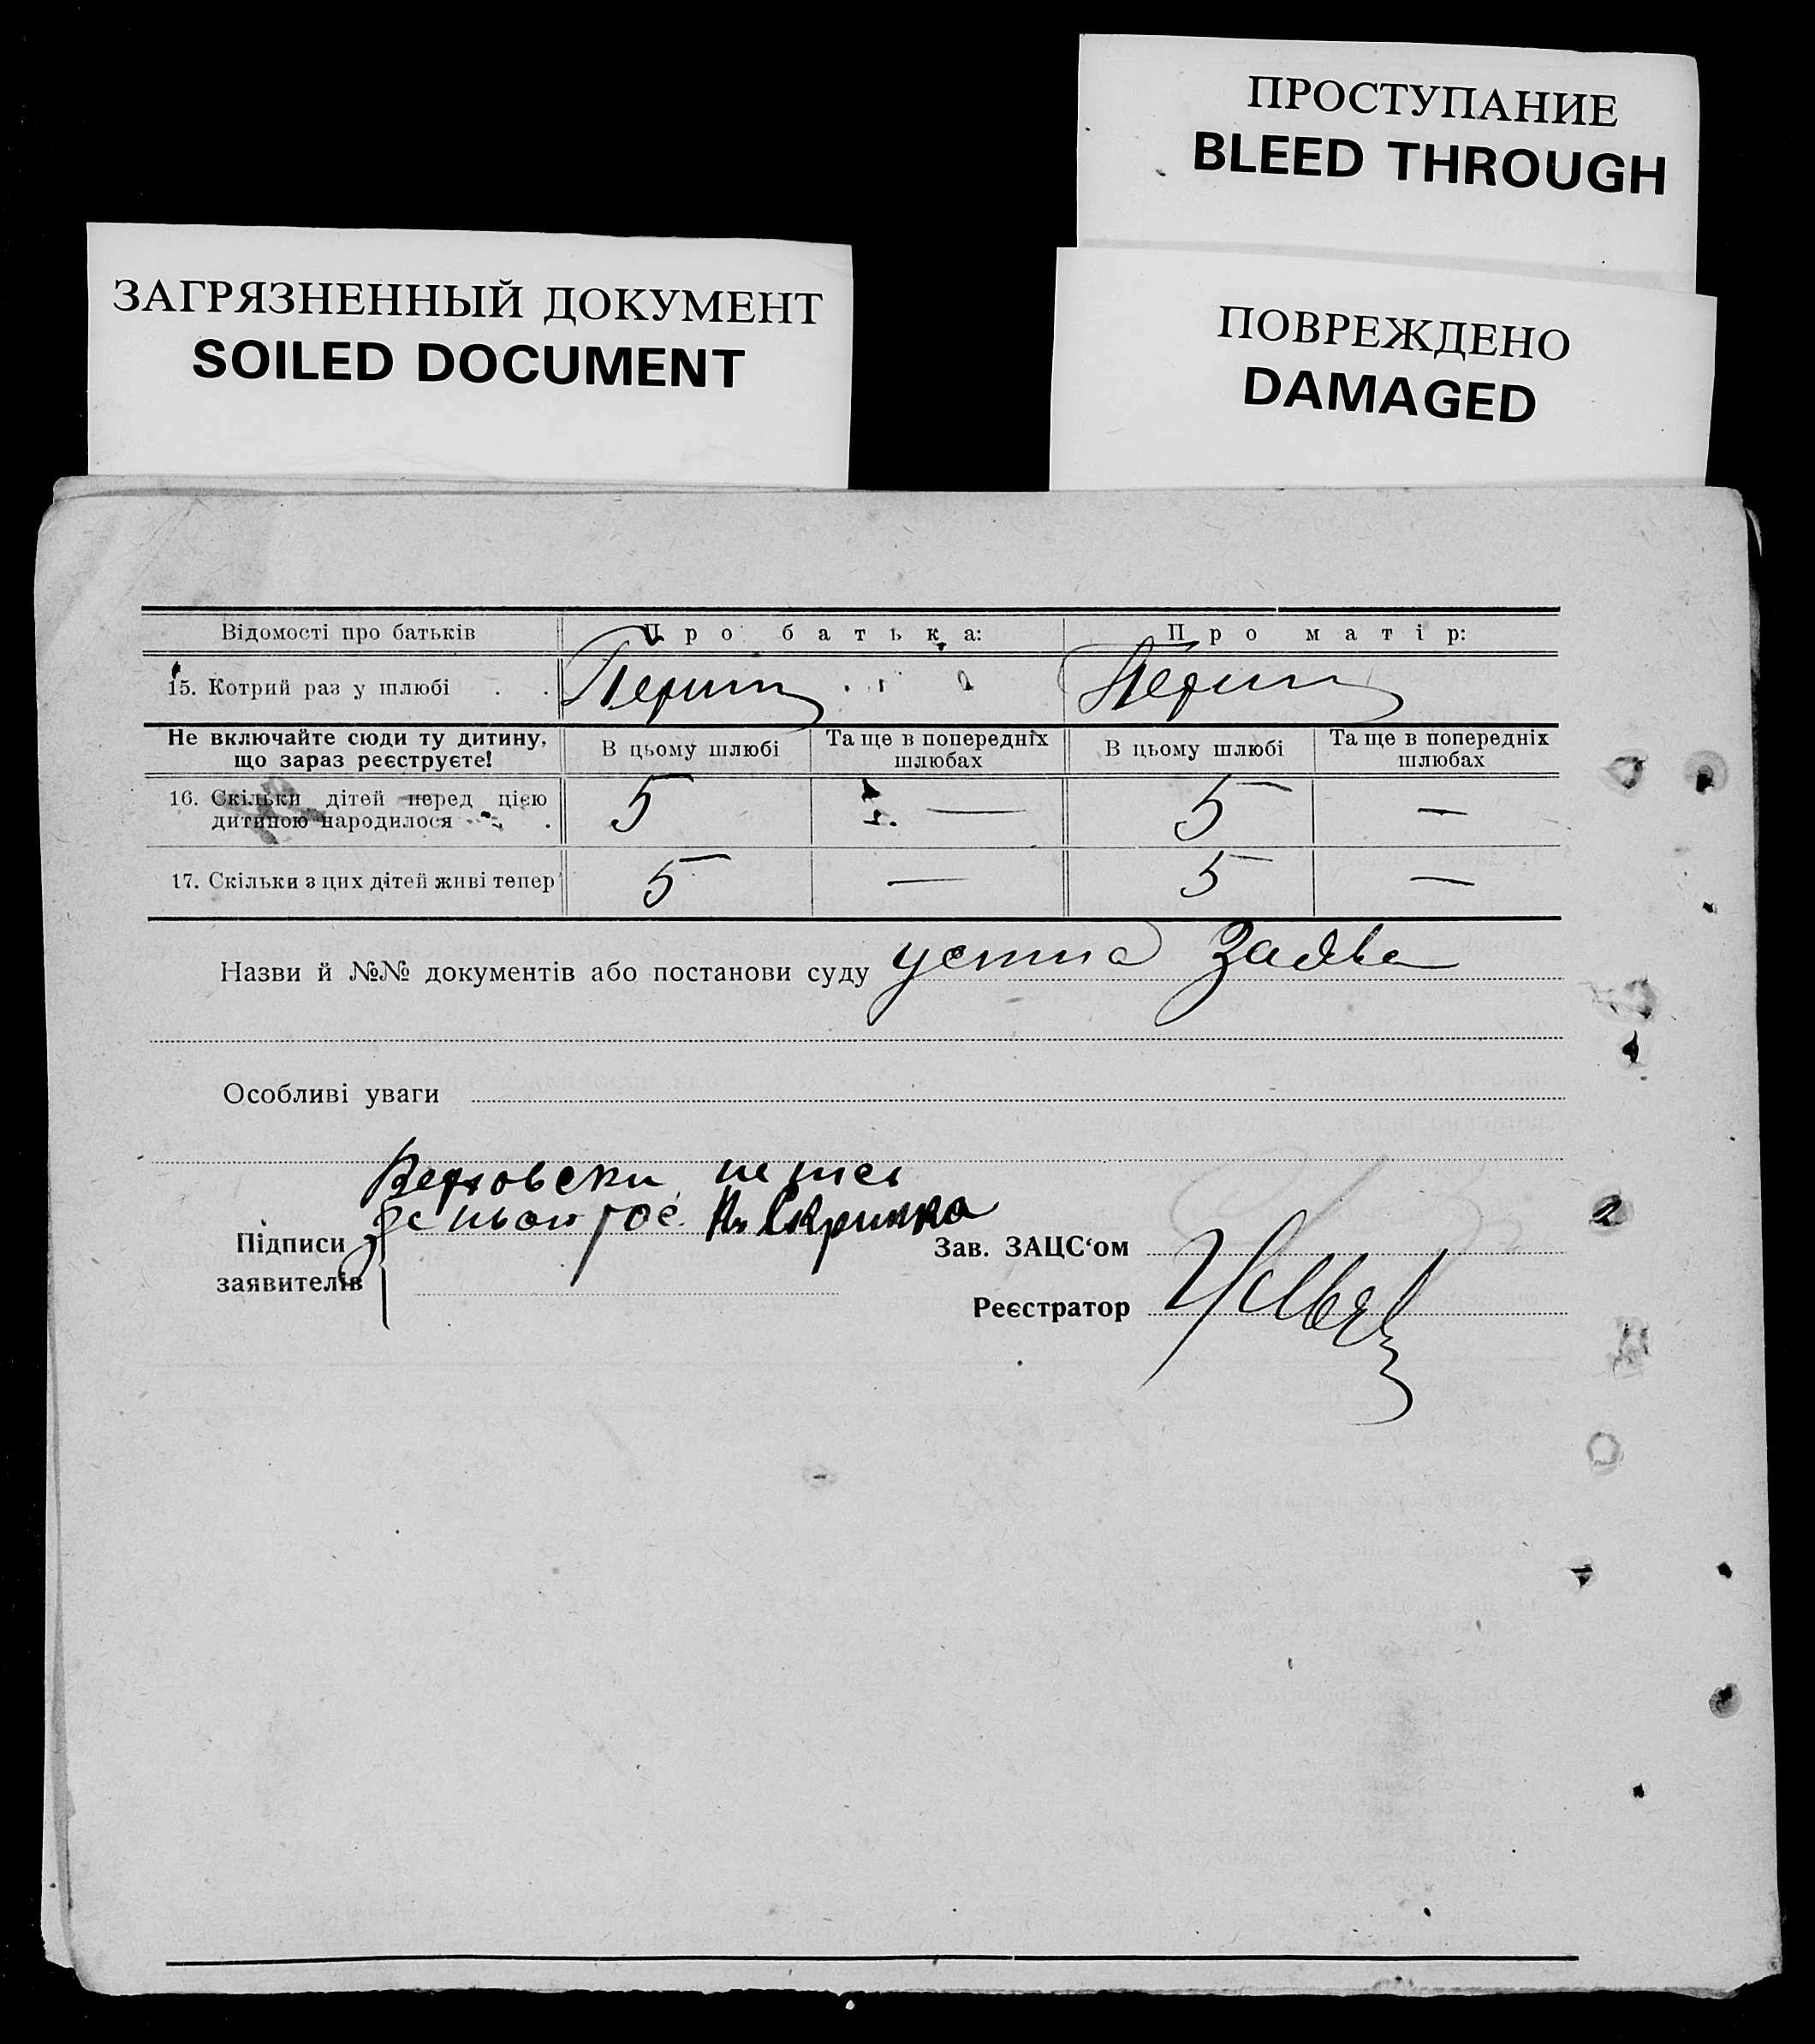 ПРОСТУПАНИЕ
BLEED THROUGH
ЗАГРЯЗНЕННЫЙ ДОКУМЕНТ
SOILED DOCUMENT
ПОВРЕЖДЕНО
DAMAGED
Відомості про батьків Про батька: Про матір:
15. Котрий раз у шлюбі . .
Не включайте сюди ту дитину, що зараз реєструєте! В цьому шлюбі Та ще в попередніх шлюбах В цьому шлюбі Та ще в попередніх шлюбах
16. Скільки дітей перед цією дитиною народилося . 5 — 5 —
17. Скільки з цих дітей живі тепер 5 — 5 —
Назви й №№ документів або постанови суду устна Заява
Особливі уваги
Підписи заявителів
Зав. ЗАЦС‘ом
Реєстратор